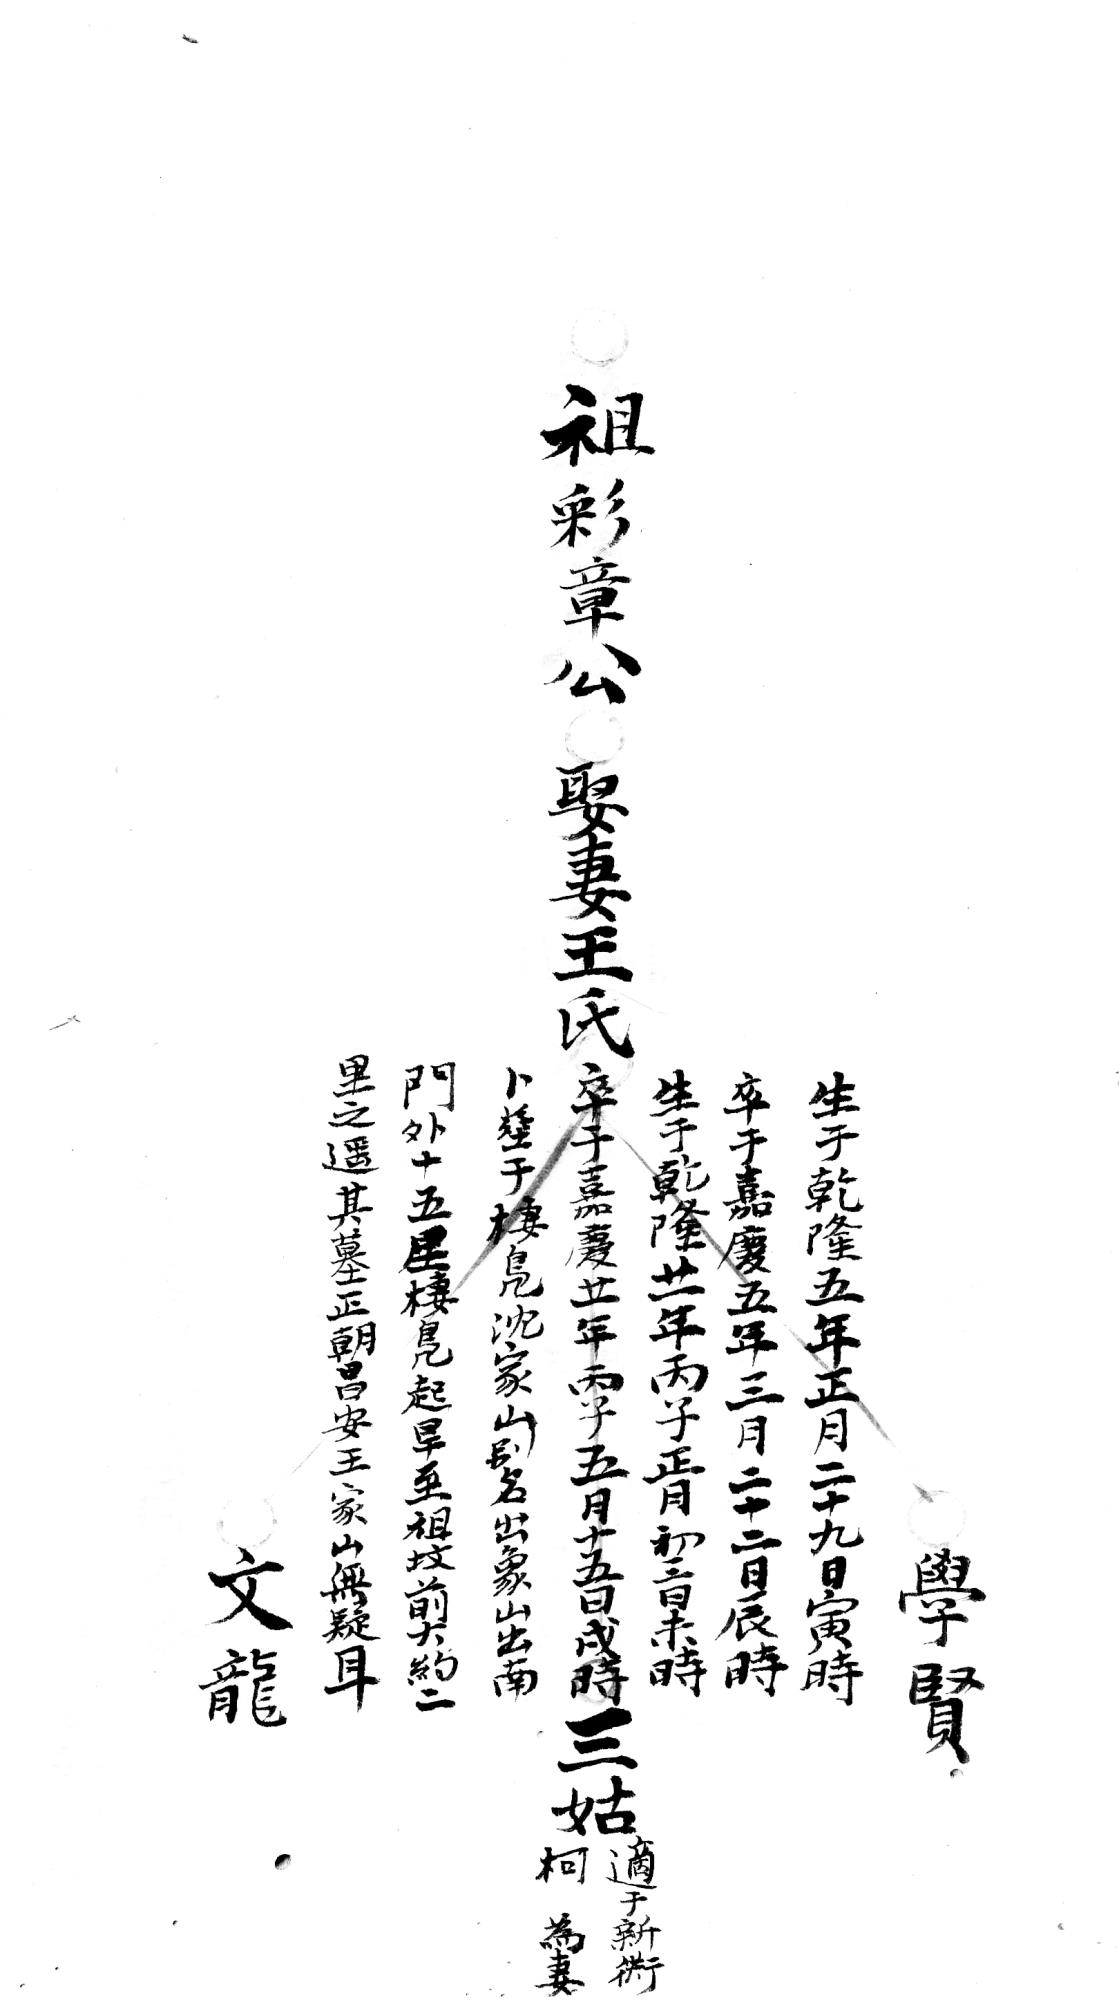 祖彩章公
娶妻王氏
生于乾隆五年正月二十九日寅時
卒于嘉慶五年三月二十二日辰時
生于乾隆廿一年丙子正月初三日未時
卒于嘉慶廿一年丙子五月十五日戌時
卜塟于棲鳧沈家山別名出象山出南
門外十五里棲鳧起旱至祖坟前大約二
里之遥其墓正朝昌安王家山無疑耳
學賢
三姑
適于新衖
柯 為妻
文龍